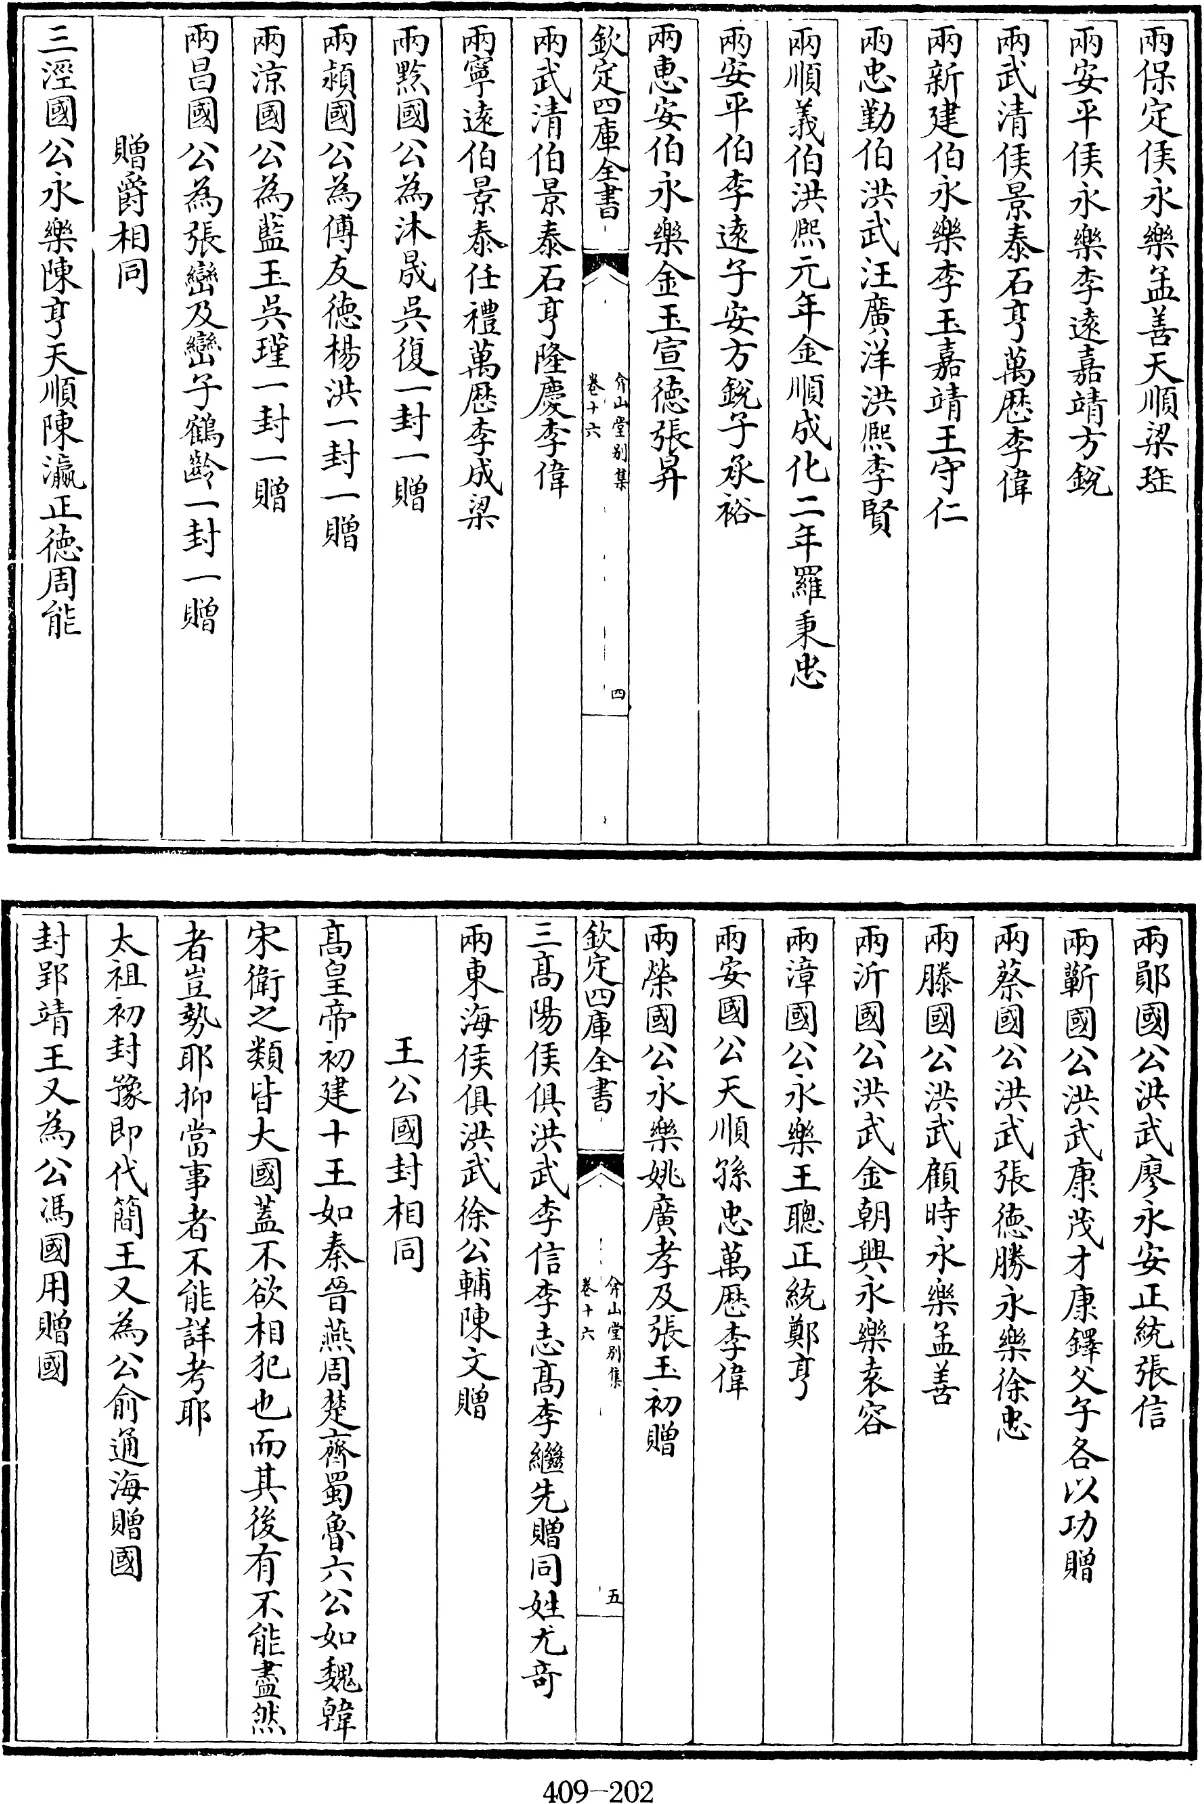 兩保定侯永樂孟善天順梁珤
兩安平侯永樂李遠嘉靖方銳
兩武清侯景泰石亨萬厯李偉
兩新建伯永樂李玉嘉靖王守仁
兩忠勤伯洪武汪廣洋洪熈李賢
兩順義伯洪熈元年金順成化二年羅秉忠
兩安平伯李遠子安方銳子承裕
兩惠安伯永樂金玉宣徳張昇
欽定四庫全書
弇山堂别集
卷十六
四
兩武清伯景泰石亨隆慶李偉
兩寧遠伯景泰任禮萬厯李成梁
兩黔國公為沐晟吳復一封一贈
兩潁國公為傅友徳楊洪一封一贈
兩涼國公為藍玉吳瑾一封一贈
兩昌國公為張巒及巒子鶴齡一封一贈
贈爵相同
三涇國公永樂陳亨天順陳瀛正徳周能
兩鄖國公洪武廖永安正統張信
兩蘄國公洪武康茂才康鐸父子各以功贈
兩蔡國公洪武張徳勝永樂徐忠
兩滕國公洪武顧時永樂孟善
兩沂國公洪武金朝興永樂袁容
兩漳國公永樂王聰正統鄭亨
兩安國公天順孫忠萬厯李偉
兩榮國公永樂姚廣孝及張玉初贈
欽定四庫全書
弇山堂别集
卷十六
五
三髙陽侯俱洪武李信李志髙李繼先贈同姓尤奇
兩東海侯俱洪武徐公輔陳文贈
王公國封相同
髙皇帝初建十王如秦晉燕周楚齊蜀魯六公如魏韓
宋衛之類皆大國蓋不欲相犯也而其後有不能盡然
者豈勢耶抑當事者不能詳考耶
太祖初封豫即代簡王又為公俞通海贈國
封郢靖王又為公馮國用贈國
409-202